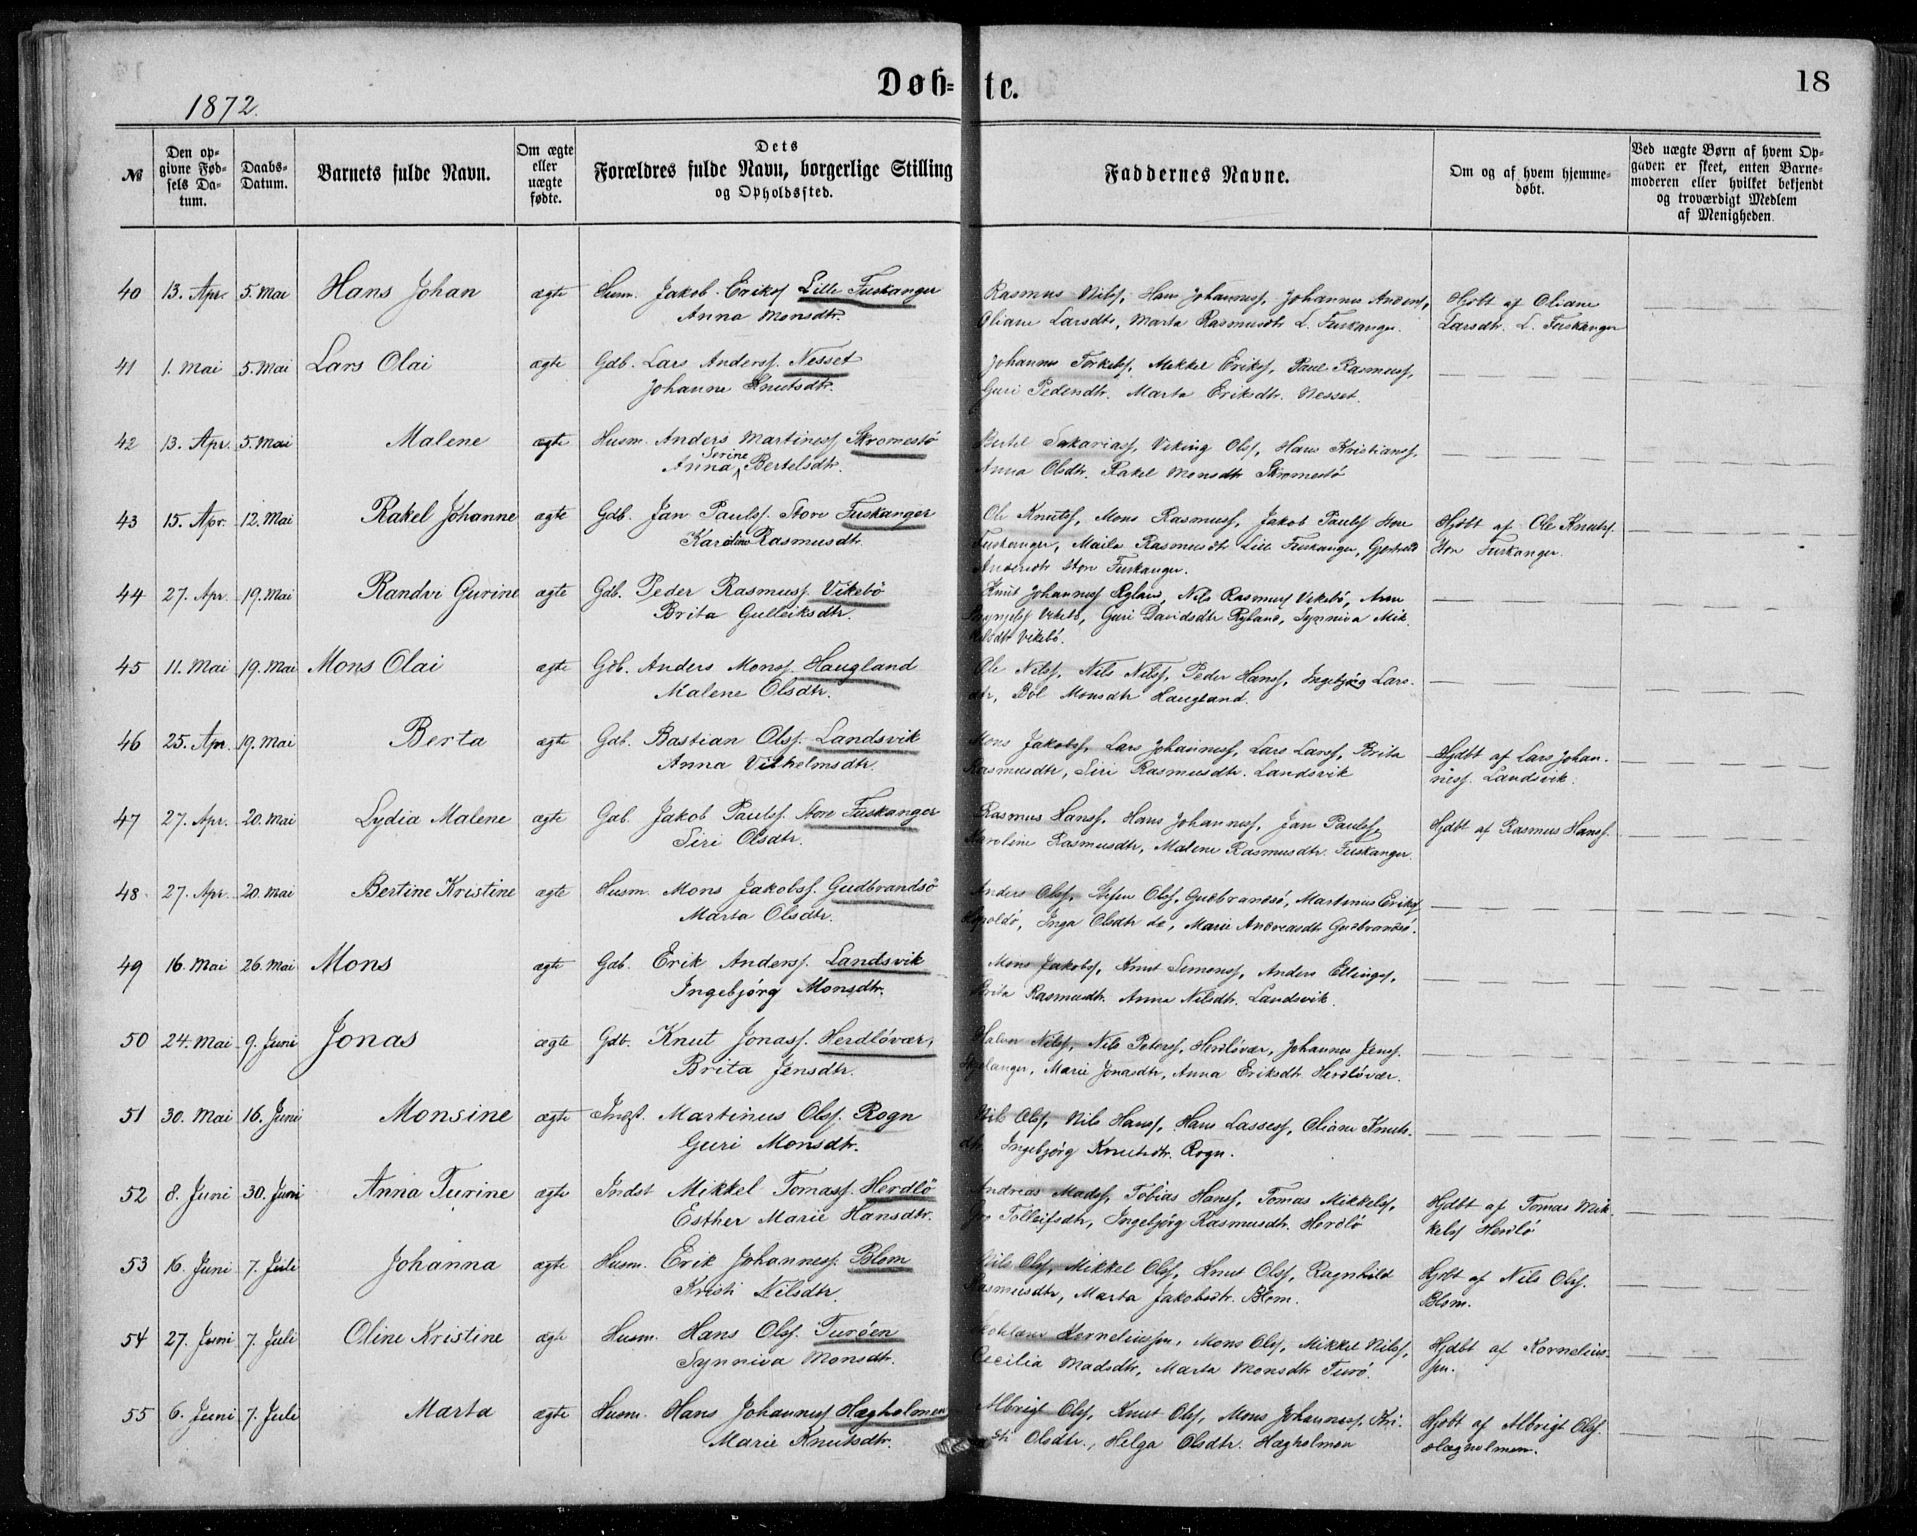 Døb=te.
18
1872.
№
Den opgivne Fødsels Datum.
Daabs-Datum.
Barnets fulde Navn.
Om ægte eller uægte fødte.
Dets Forældres fulde Navn, borgerlige Stilling og Opholdssted.
Faddernes Navne.
Om og af hvem hjemmedøbt.
Ved uægte Børn af hvem Opgaven er skeet, enten Barnemoderen eller hvilket bekjendt og troværdigt Medlem af Menigheden.
40 13. Apr. 5. Mai Hans Johan ægte Husm. Jakob Eriks. Lille Fuskanger Rasmus Nilss, Hans Johanness, Johannes Anderss, Hjdbt af Oliane
Anna Monsdtr. Oliane Larsdtr, Marta Rasmusdtr L. Fuskanger. Larsdtr. L. Fuskanger
41 1. Mai 5. Mai Lars Olai ægte Gdb. Lars Anderss. Nesset Johannes Torkelss, Mikkel Erikss, Paul Rasmuss,
Johanne Knutsdtr. Guri Pedersdtr. Marta Eriksdtr. Nesset.
42 13. Apr. 5. Mai Malene ægte Husm. Anders Martiness Skromestö Bertel Sakariass, Viking Olss, Hans Kristianss,
Anna Serine Bertelsdtr. Anna Olsdtr. Rakel Monsdtr Skromestö
43 15. Apr. 12. Mai Rakel Johanne ægte Gdb. Jan Paulss. Store Fuskanger Ole Knutss, Mons Rasmuss, Jakob Paulss Store Hjdbt af Ole Knutss.
Karoline Rasmusdtr. Fuskanger, Maila Rasmusdtr Lille Fuskanger, Gjertrud Store Fuskanger.
Andersdtr Store Fuskanger.
44 27. Apr. 19. Mai Randvi Gurine ægte Gdb. Peder Rasmuss. Vikebö Knut Johanness Ryland, Nils Rasmuss Vikebö, Anna
Brita Gulleiksdtr. Vikebö, Guri Davidsdtr Ryland, Synniva Mik-
kelsdtr Vikebö.
45 11. Mai 19. Mai Mons Olai ægte Gdb. Anders Monss. Haugland Ole Nilss, Nils Nilss, Peder Hanss, Ingebjørg Lars-
Malene Olsdtr. dtr, Böl Monsdtr Haugland.
46 25. Apr. 19. Mai Berta ægte Gdb. Bastian Olss. Landsvik Mons Jakobss, Lars Johanness, Lars Larss, Brita Hjdbt af Lars Johan-
Anna Vilhelmsdtr. Rasmusdtr, Siri Rasmusdtr. Landsvik ness. Landsvik.
47 27. Apr. 20. Mai Lydia Malene ægte Gdb. Jakob Paulss. Store Fuskanger Rasmus Hanss, Hans Johanness, Jan Paulss, Hjdbt af Rasmus Hanss.
Siri Olsdtr. Karoline Rasmusdtr, Malene Rasmusdtr. Fuskanger.
48 27. Apr. 20. Mai Bertine Kristine ægte Husm. Mons Jakobss. Gudbrandsö Anders Olss, Stefen Olss, Gudbrandsö, Martinus Erikss
Marta Olsdtr. Inga Olsdtr do, Marie Andreasdtr Gudbrandsö.
49 16. Mai 26. Mai Mons ægte Gdb. Erik Anderss. Landsvik Mons Jakobss, Knut Simonss, Anders Ellingss,
Ingebjörg Monsdtr. Brita Rasmusdtr. Anna Nilsdtr. Landsvik.
50 24. Mai 9. Juni Jonas ægte Gdb. Knut Jonass. Herdlövær, Halvor Nilss, Nils Peterss, Herdlövær, Johannes Jenss.
Brita Jensdtr. Marie Jonasdtr, Anna Eriksdtr Herdlövær.
51 30. Mai 16. Juni Monsine ægte Indst. Martinus Olss. Rogn Nils Olss, Nils Hanss, Hans Lassess, Oliane Knuts-
Guri Monsdtr. dtr. Ingebjörg Knutsdtr. Rogn.
52 8. Juni 30. Juni Anna Turine ægte Indst Mikkel Tomass. Herdlö Andreas Madss, Tobias Hanss, Tomas Mikkelss, Hjdbt af Tomas Mik-
Esther Marie Hansdtr. Tolleifsdtr, Ingebjörg Rasmusdtr. Herdlö kelss Herdlö
53 16. Juni 7. Juli Johanna ægte Husm. Erik Johanness. Blom Nils Olss, Mikkel Olss, Knut Olss, Ragnhild Hjdbt af Nils Olss.
Kristi Nilsdtr. Rasmusdtr, Marta Jakobsdtr. Blom. Blom.
54 27. Juni 7. Juli Oline Kristine ægte Husm. Hans Olss. Turöen Korneliussen, Mons Olss, Mikkel Nilss, Hjdbt af Kornelius-
Synniva Monsdtr. Cecilia Madsdtr, Marta Monsdtr Turö. sen.
55 6. Juni 7. Juli Marta ægte Husm. Hans Johanness Hægholmen Albrigt Olss, Knut Olss, Mons Johanness, Kri- Hjdbt af Albrigt Olss.
Marie Knutsdtr. sti Olsdtr, Helga Olsdtr. Hægholmen Hægholmen.